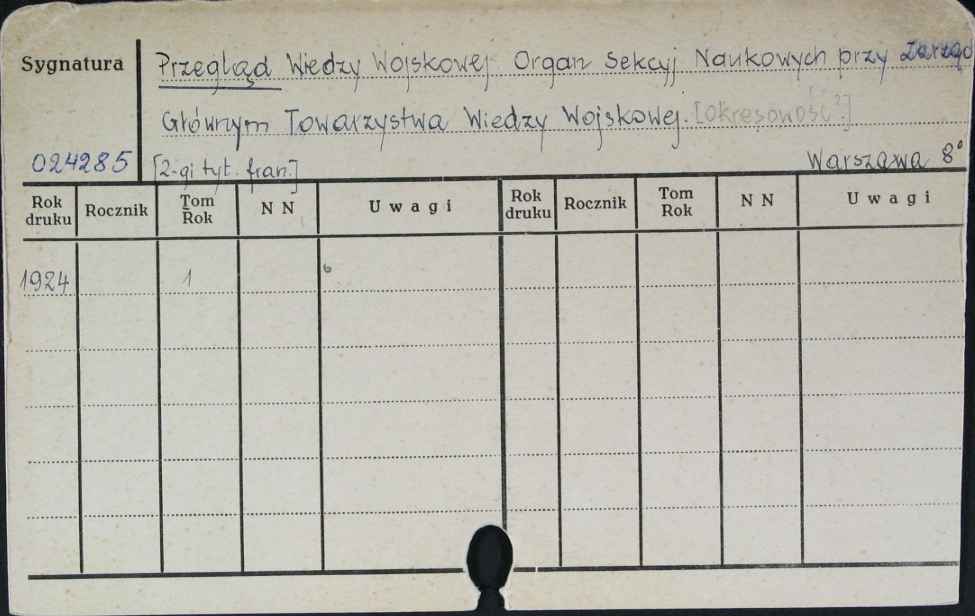 Sygnatura
Przegląd Wiedzy Wojskowej. Organ Sekcyj Naukowych przy Zarząd
Głównym Towarzystwa Wiedzy Wojskowej. [Okresowość?]
024285 [2-gi tyt. fran.] Warszawa 8°
Rok druku Rocznik Tom Rok NN Uwagi Rok druku Rocznik Tom Rok NN Uwagi
1924 1